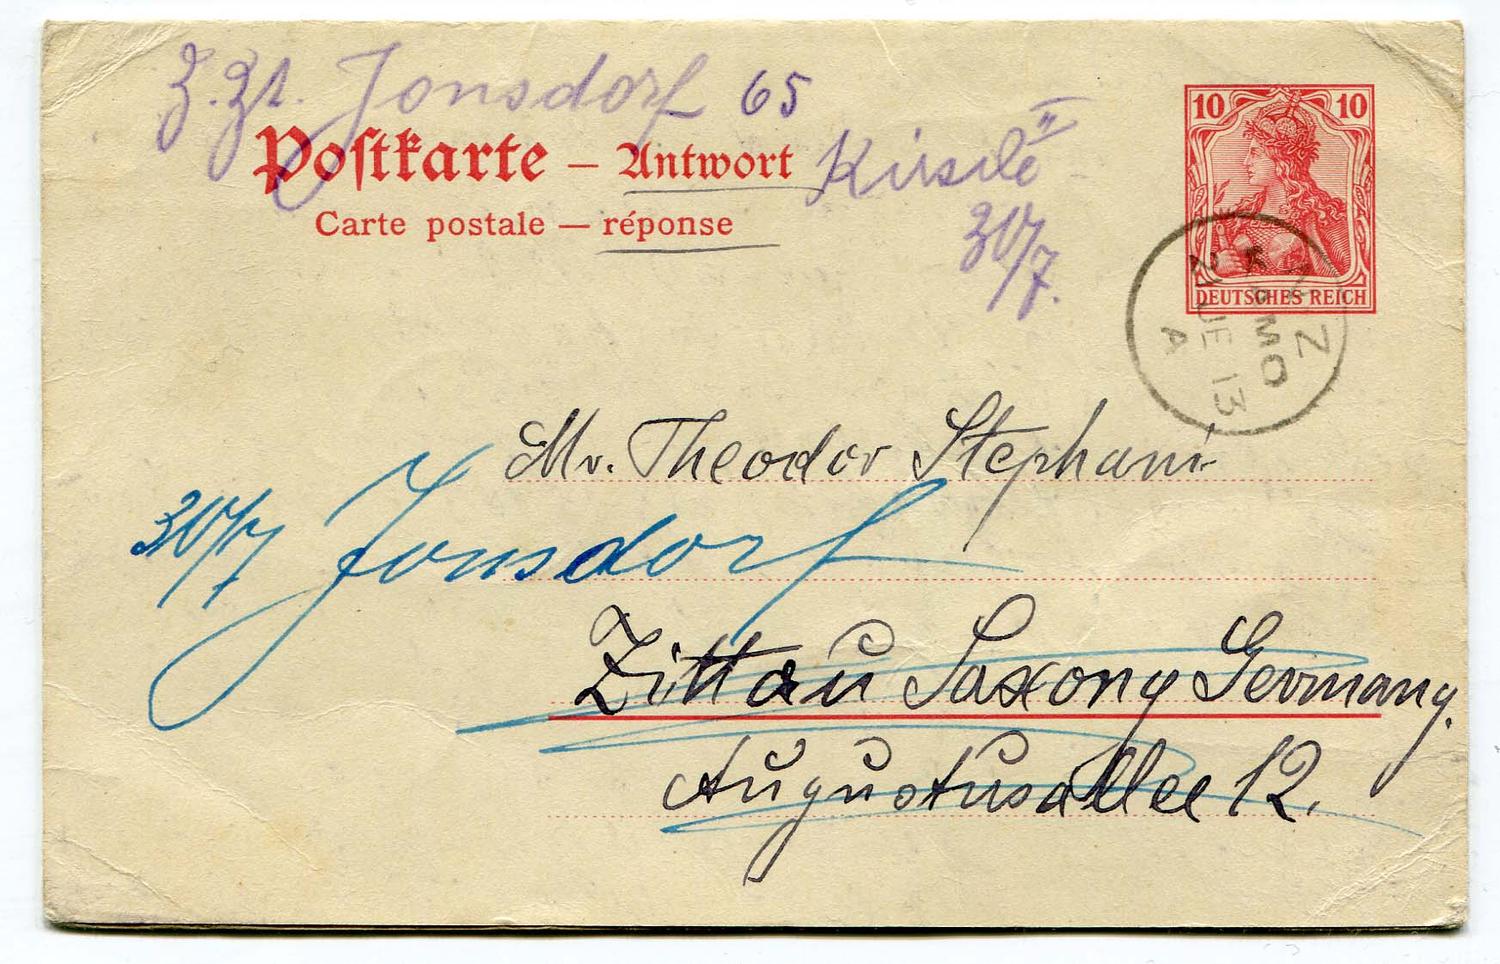 Z. Zt. Jonsdorf 65
10 10
Postkarte – Antwort
Carte postale – réponse
30/7.
DEUTSCHES REICH
N Z
KAMO
21 JE 13
A
Mr. Theodor Stephani
30/7 Jonsdorf
Zittau Saxony Germany.
Augustusallee 12.